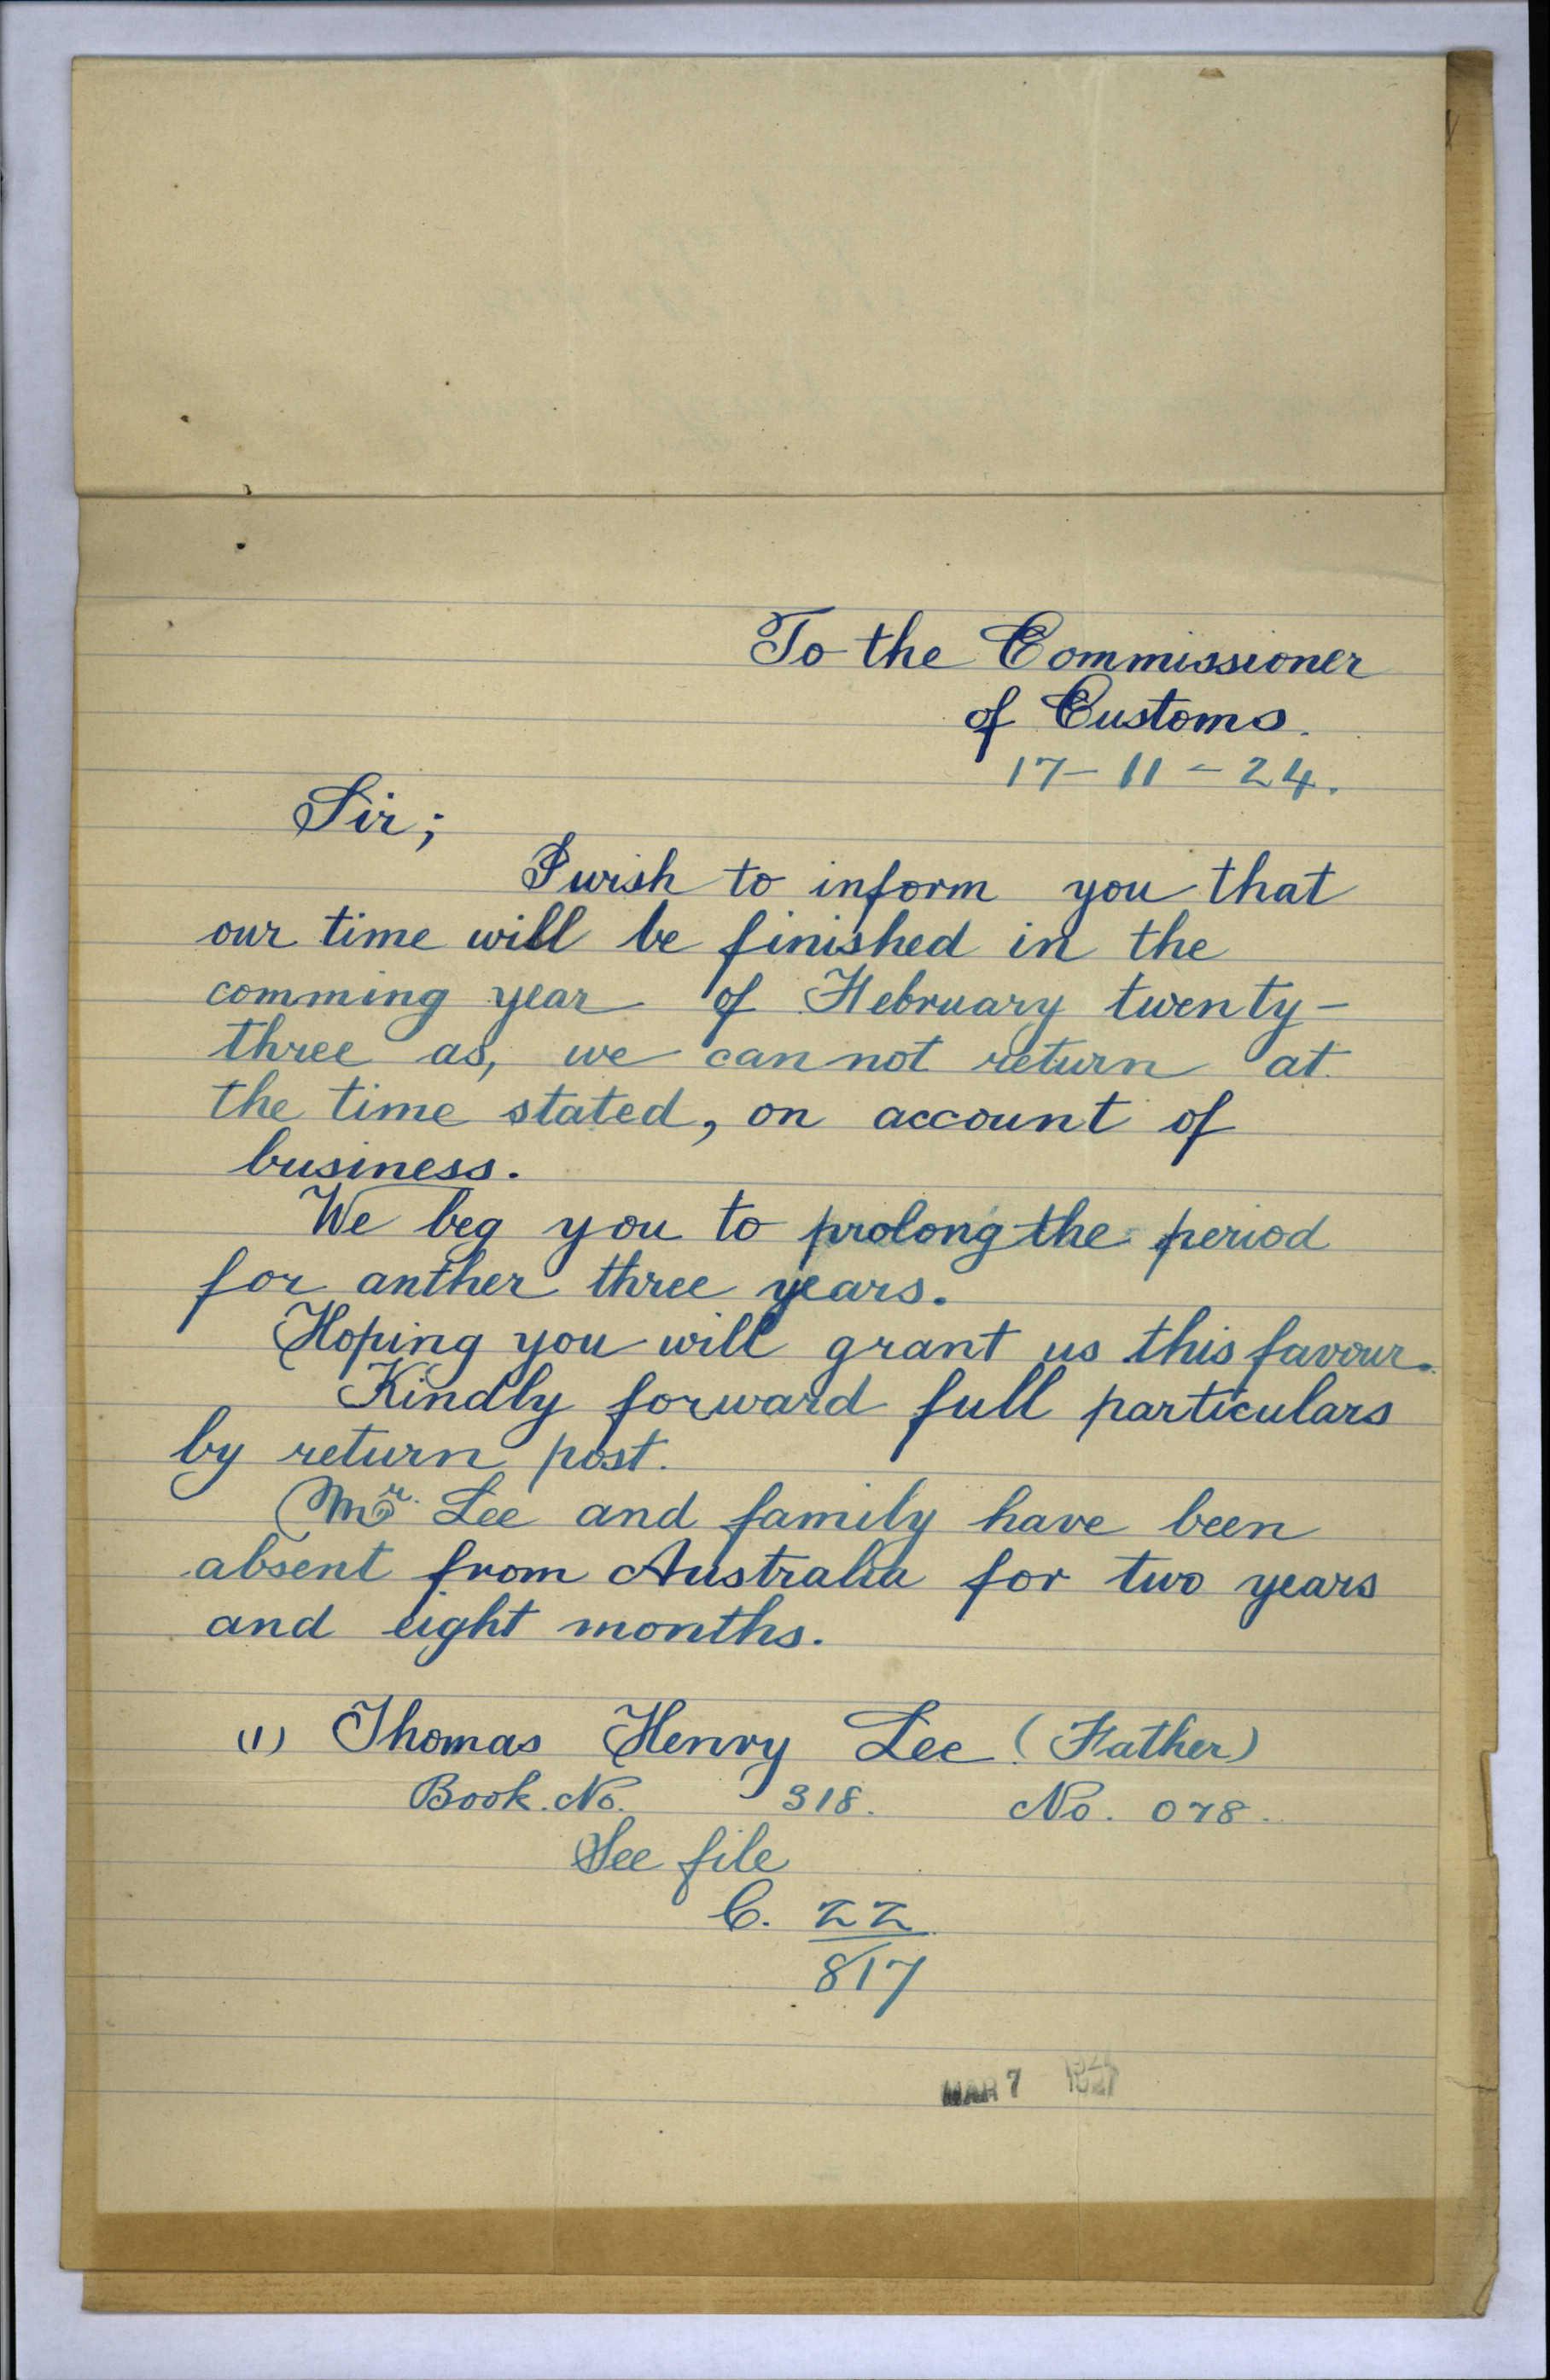 To the Commissioner
of Customs.
17-11-24.
Sir;
I wish to inform you that
our time will be finished in the
comming year of February twenty-
three as, we can not return at
the time stated, on account of
business.
We beg you to prolong the period
for anther three years.
Hoping you will grant us this favour.
Kindly forward full particulars
by return post.
Mr. Lee and family have been
absent from Australia for two years
and eight months.
(1) Thomas Henry Lee (Father)
Book. No. 318. No. 078.
See file
C. 22
817
MAR 7